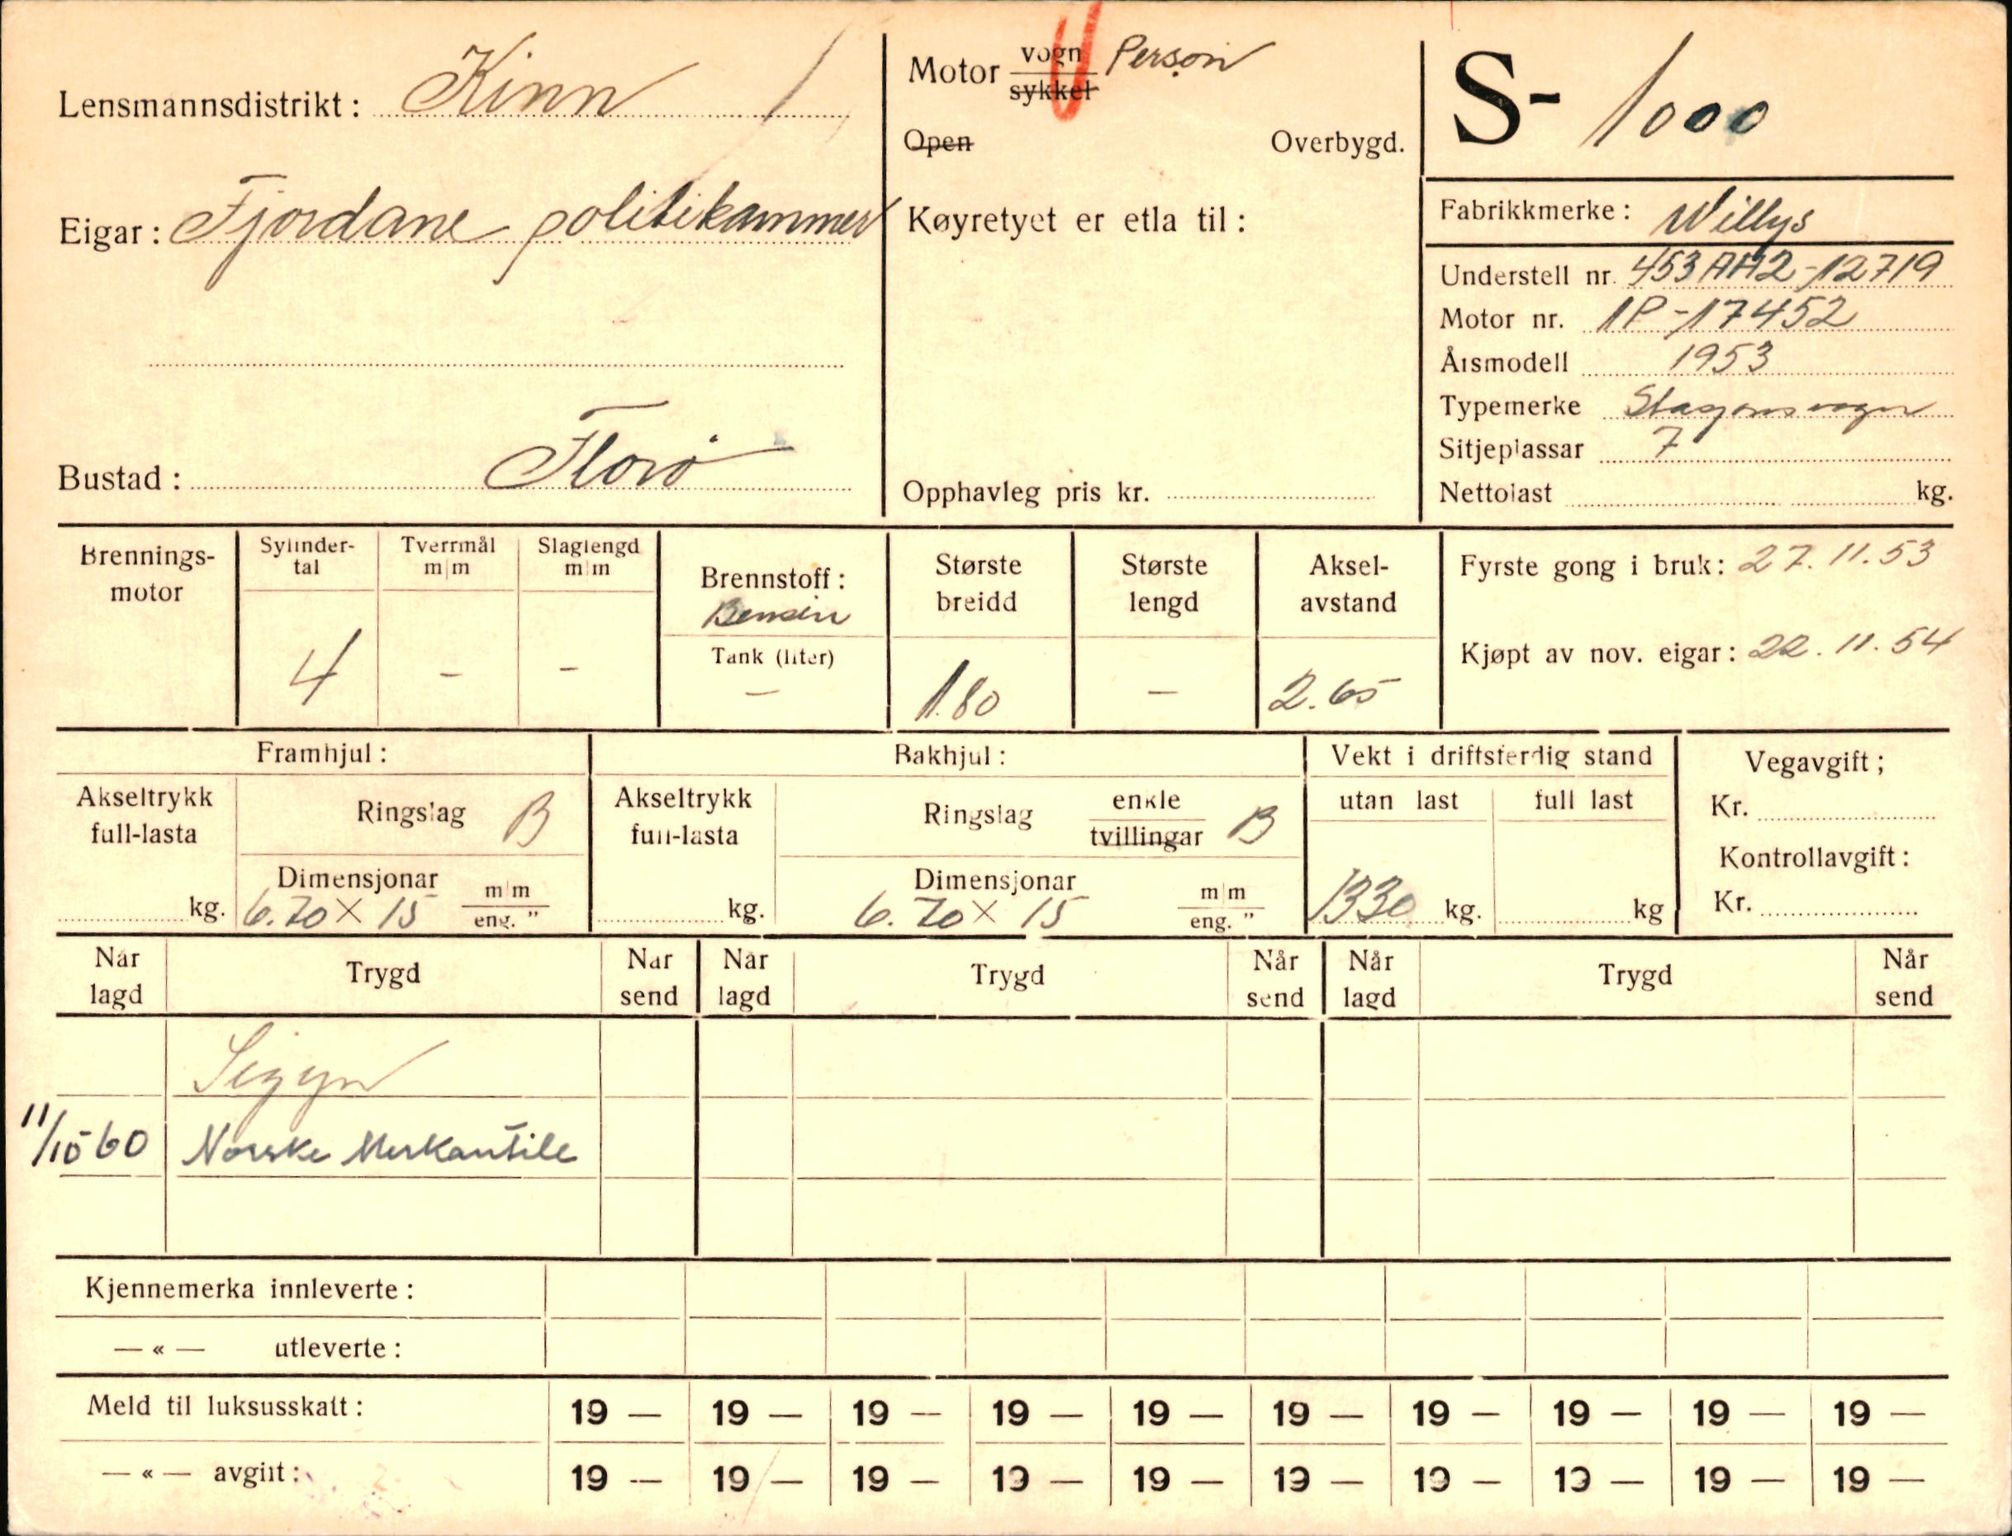 Lensmannsdistrikt: Kinn
Eigar: Fjordane politikammer
Bustad: Florø
Motor vogn Person
sykkel
Open Overbygd.
Køyretyet er etla til:
Opphavleg pris kr.
S- 1000
Fabrikkmerke: Willys
Understell nr. 453AA2-12719
Motor nr. 1P-17452
Årsmodell 1953
Typemerke Stasjonsvogn
Sitjeplassar 7
Nettolast kg.
Brennings-
motor
Sylinder-
tal
4
Tverrmål
m/m
-
Slaglengd
m/m
-
Brennstoff:
Bensin
Tank (liter)
-
Største
breidd
1.80
Største
lengd
-
Aksel-
avstand
2.65
Fyrste gong i bruk: 27.11.53
Kjøpt av nov. eigar: 22.11.54
Framhjul:
Akseltrykk
full-lasta
kg.
Ringslag B
Dimensjonar m/m
6.70 x 15 eng. "
Bakhjul:
Akseltrykk
full-lasta
kg.
Ringslag enkle
tvillingar B
Dimensjonar m/m
6.70 x 15 eng. "
Vekt i driftsferdig stand
utan last full last
1330 kg. kg
Vegavgift;
Kr.
Kontrollavgift:
Kr.
Når lagd Trygd Når send Når lagd Trygd Når send Når lagd Trygd Når send
Sigyn
11/10 60 Norske Merkantile
Kjennemerka innleverte:
— « — utleverte:
Meld til luksusskatt: 19 — 19 — 19 — 19 — 19 — 19 — 19 — 19 — 19 — 19 —
— « — avgift: 19 — 19 — 19 — 19 — 19 — 19 — 19 — 19 — 19 — 19 —